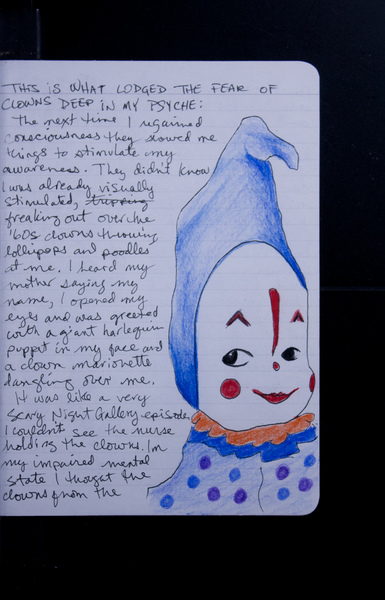 THIS IS WHAT LODGED THE FEAR OF
CLOWNS DEEP IN MY PSYCHE:
The next time I regained
consciousness they showed me
things to stimulate my
awareness. They didn't know
I was already visually
stimulated, tripping
freaking out over the
'60s clowns throwing
lollipops and poodles
at me. I heard my
mother saying my
name, I opened my
eyes and was greeted
with a giant harlequin
puppet in my face and
a clown marionette
dangling over me.
It was like a very
scary Night Gallery episode,
I couldn't see the nurse
holding the clowns. In
my impaired mental
state I thought the
clowns from the